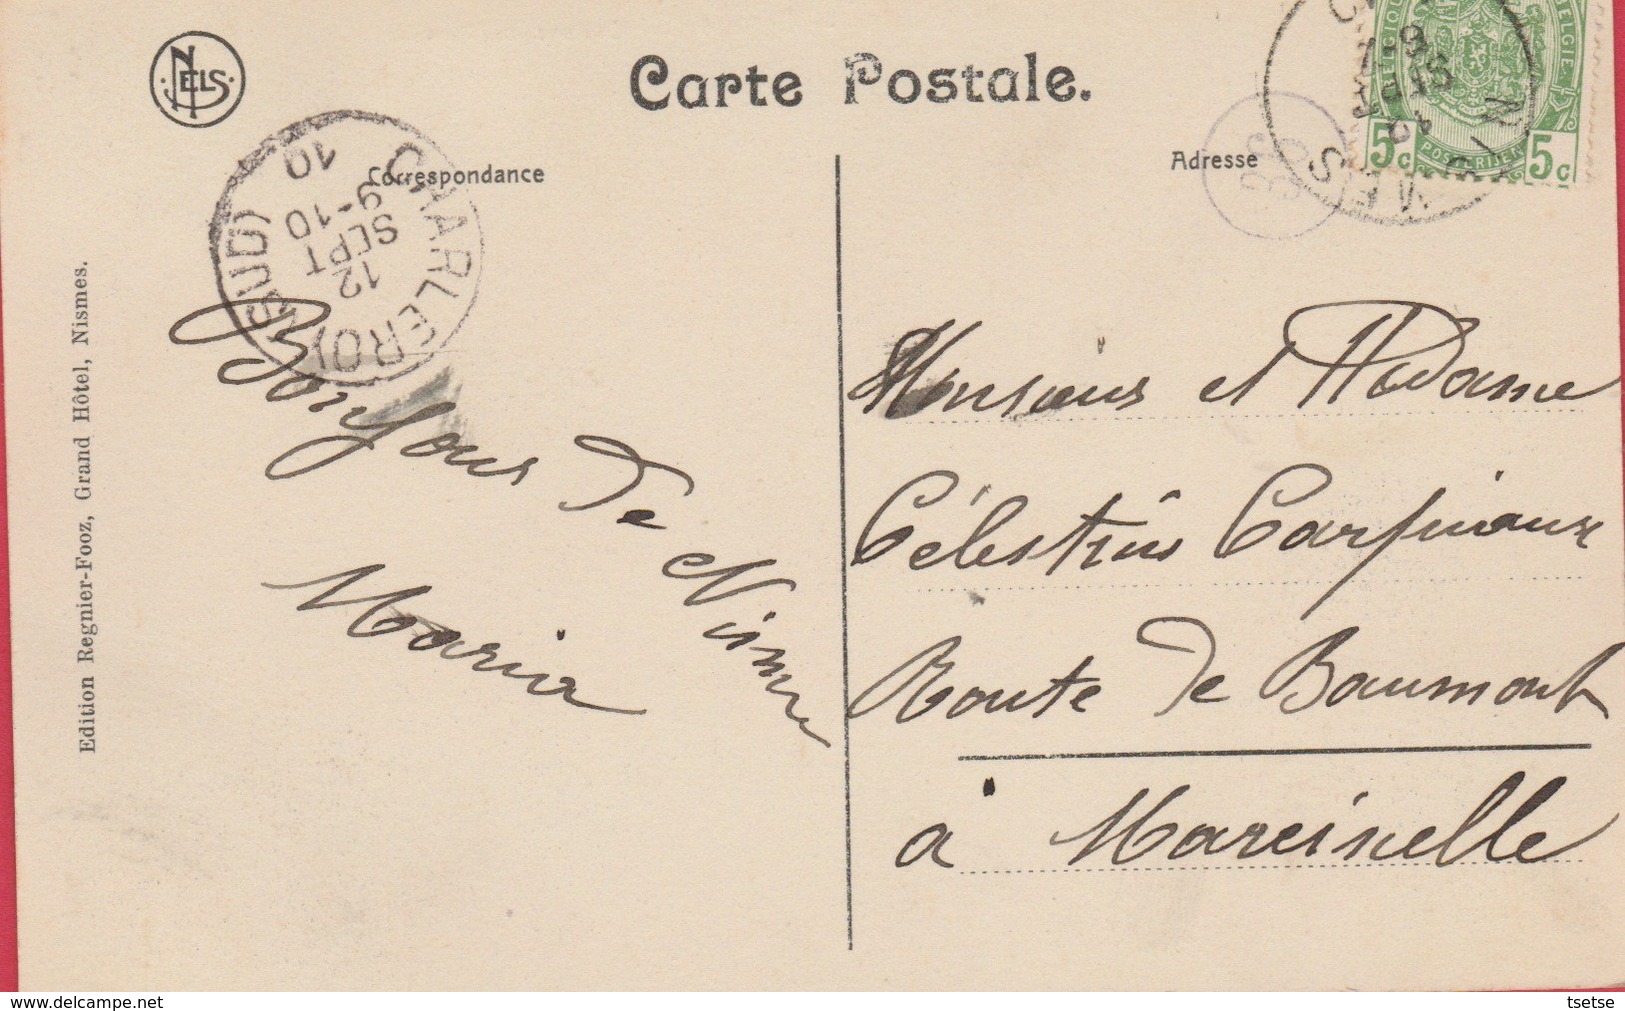 NELS
Carte Postale.
Correspondance
Adresse
CHARLEROY (SUD)
12
SEPT
9-10
10
BELGIQUE
BELGIE
POSTERIJEN
5c 5c
Edition Regnier-Fooz, Grand Hôtel, Nismes.
Bonjour de Nismes
Maria
Monsieur et Madame
Célestin Carpiaux
Route de Beaumont
à Marcinelle
tsetse